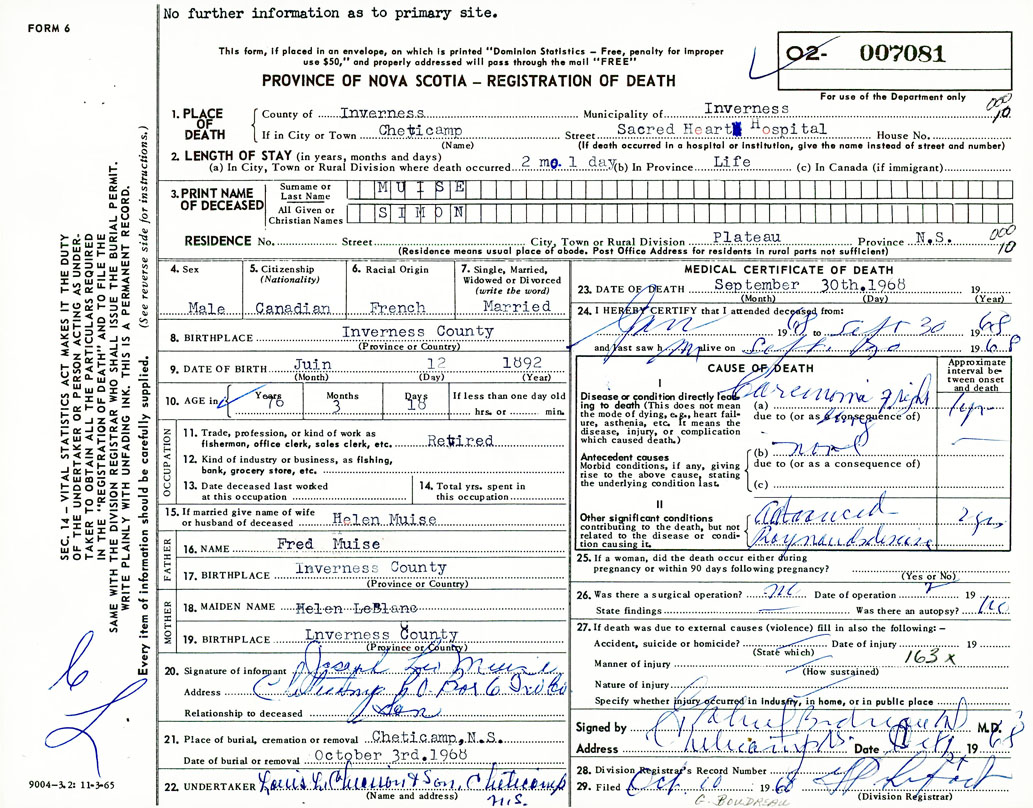 No further information as to primary site.
FORM 6
This form, if placed in an envelope, on which is printed "Dominion Statistics – Free, penalty for improper
use $50," and properly addressed will pass through the mail "FREE"
PROVINCE OF NOVA SCOTIA – REGISTRATION OF DEATH
02- 007081
For use of the Department only
000
10
1. PLACE OF DEATH
County of Inverness Municipality of Inverness
If in City or Town Cheticamp Street Sacred Heart Hospital House No.
(Name) (If death occurred in a hospital or institution, give the name instead of street and number)
2. LENGTH OF STAY (in years, months and days)
(a) In City, Town or Rural Division where death occurred 2 mo. 1 day (b) In Province Life (c) In Canada (if immigrant)
3. PRINT NAME OF DECEASED
Surname or Last Name MUISE
All Given or Christian Names SIMON
RESIDENCE No. Street City, Town or Rural Division Plateau Province N.S.
000
10
(Residence means usual place of abode. Post Office Address for residents in rural parts not sufficient)
4. Sex
Male
5. Citizenship
(Nationality)
Canadian
6. Racial Origin
French
7. Single, Married,
Widowed or Divorced
(write the word)
Married
8. BIRTHPLACE Inverness County
(Province or Country)
9. DATE OF BIRTH Juin 12 1892
(Month) (Day) (Year)
10. AGE in Years 76 Months 3 Days 18 If less than one day old
hrs. or min.
OCCUPATION
11. Trade, profession, or kind of work as
fisherman, office clerk, sales clerk, etc. Retired
12. Kind of industry or business, as fishing,
bank, grocery store, etc.
13. Date deceased last worked
at this occupation
14. Total yrs. spent in
this occupation
15. If married give name of wife
or husband of deceased Helen Muise
FATHER
16. NAME Fred Muise
17. BIRTHPLACE Inverness County
(Province or Country)
MOTHER
18. MAIDEN NAME Helen LeBlanc
19. BIRTHPLACE Inverness County
(Province or Country)
20. Signature of informant Joseph Leo Muise
Address Cheticamp P.O. Box 6
Relationship to deceased Son
21. Place of burial, cremation or removal Cheticamp, N.S.
Date of burial or removal October 3rd. 1968
22. UNDERTAKER Louis L. & Son, Cheticamp
(Name and address) N.S.
MEDICAL CERTIFICATE OF DEATH
23. DATE OF DEATH September 30th. 1968 19
(Month) (Day) (Year)
24. I HEREBY CERTIFY that I attended deceased from:
Jan 1968 to Sept 30 1968
and last saw him alive on Sept. 30 1968
CAUSE OF DEATH
Approximate
interval be-
tween onset
and death
I
Disease or condition directly lead-
ing to death (This does not mean
the mode of dying, e.g., heart fail-
ure, asthenia, etc. It means the
disease, injury, or complication
which caused death.)
(a) Carcinoma of right lung 1 yr
due to (or as a consequence of)
Antecedent causes
Morbid conditions, if any, giving
rise to the above cause, stating
the underlying condition last.
(b) none
due to (or as a consequence of)
(c)
II
Other significant conditions
contributing to the death, but not
related to the disease or condi-
tion causing it.
Advanced 2 yrs
Raynauds disease
25. If a woman, did the death occur either during
pregnancy or within 90 days following pregnancy?
(Yes or No)
26. Was there a surgical operation? no Date of operation 19
State findings — Was there an autopsy? no
27. If death was due to external causes (violence) fill in also the following: –
Accident, suicide or homicide? Date of injury 19
(State which) 163 x
Manner of injury
(How sustained)
Nature of injury
Specify whether injury occurred in Industry, in home, or in public place
Signed by M.D.
Address Cheticamp N.S. Date Oct 1968
28. Division Registrar's Record Number
29. Filed Oct 10 1968
(Division Registrar)
G. BOUDREAU
SEC. 14 – VITAL STATISTICS ACT MAKES IT THE DUTY
OF THE UNDERTAKER OR PERSON ACTING AS UNDER-
TAKER TO OBTAIN ALL THE PARTICULARS REQUIRED
IN THE "REGISTRATION OF DEATH" AND TO FILE THE
SAME WITH THE DIVISION REGISTRAR WHO SHALL ISSUE THE BURIAL PERMIT.
WRITE PLAINLY WITH UNFADING INK. THIS IS A PERMANENT RECORD.
Every item of information should be carefully supplied. (See reverse side for instructions.)
9004–3.2: 11-3-65